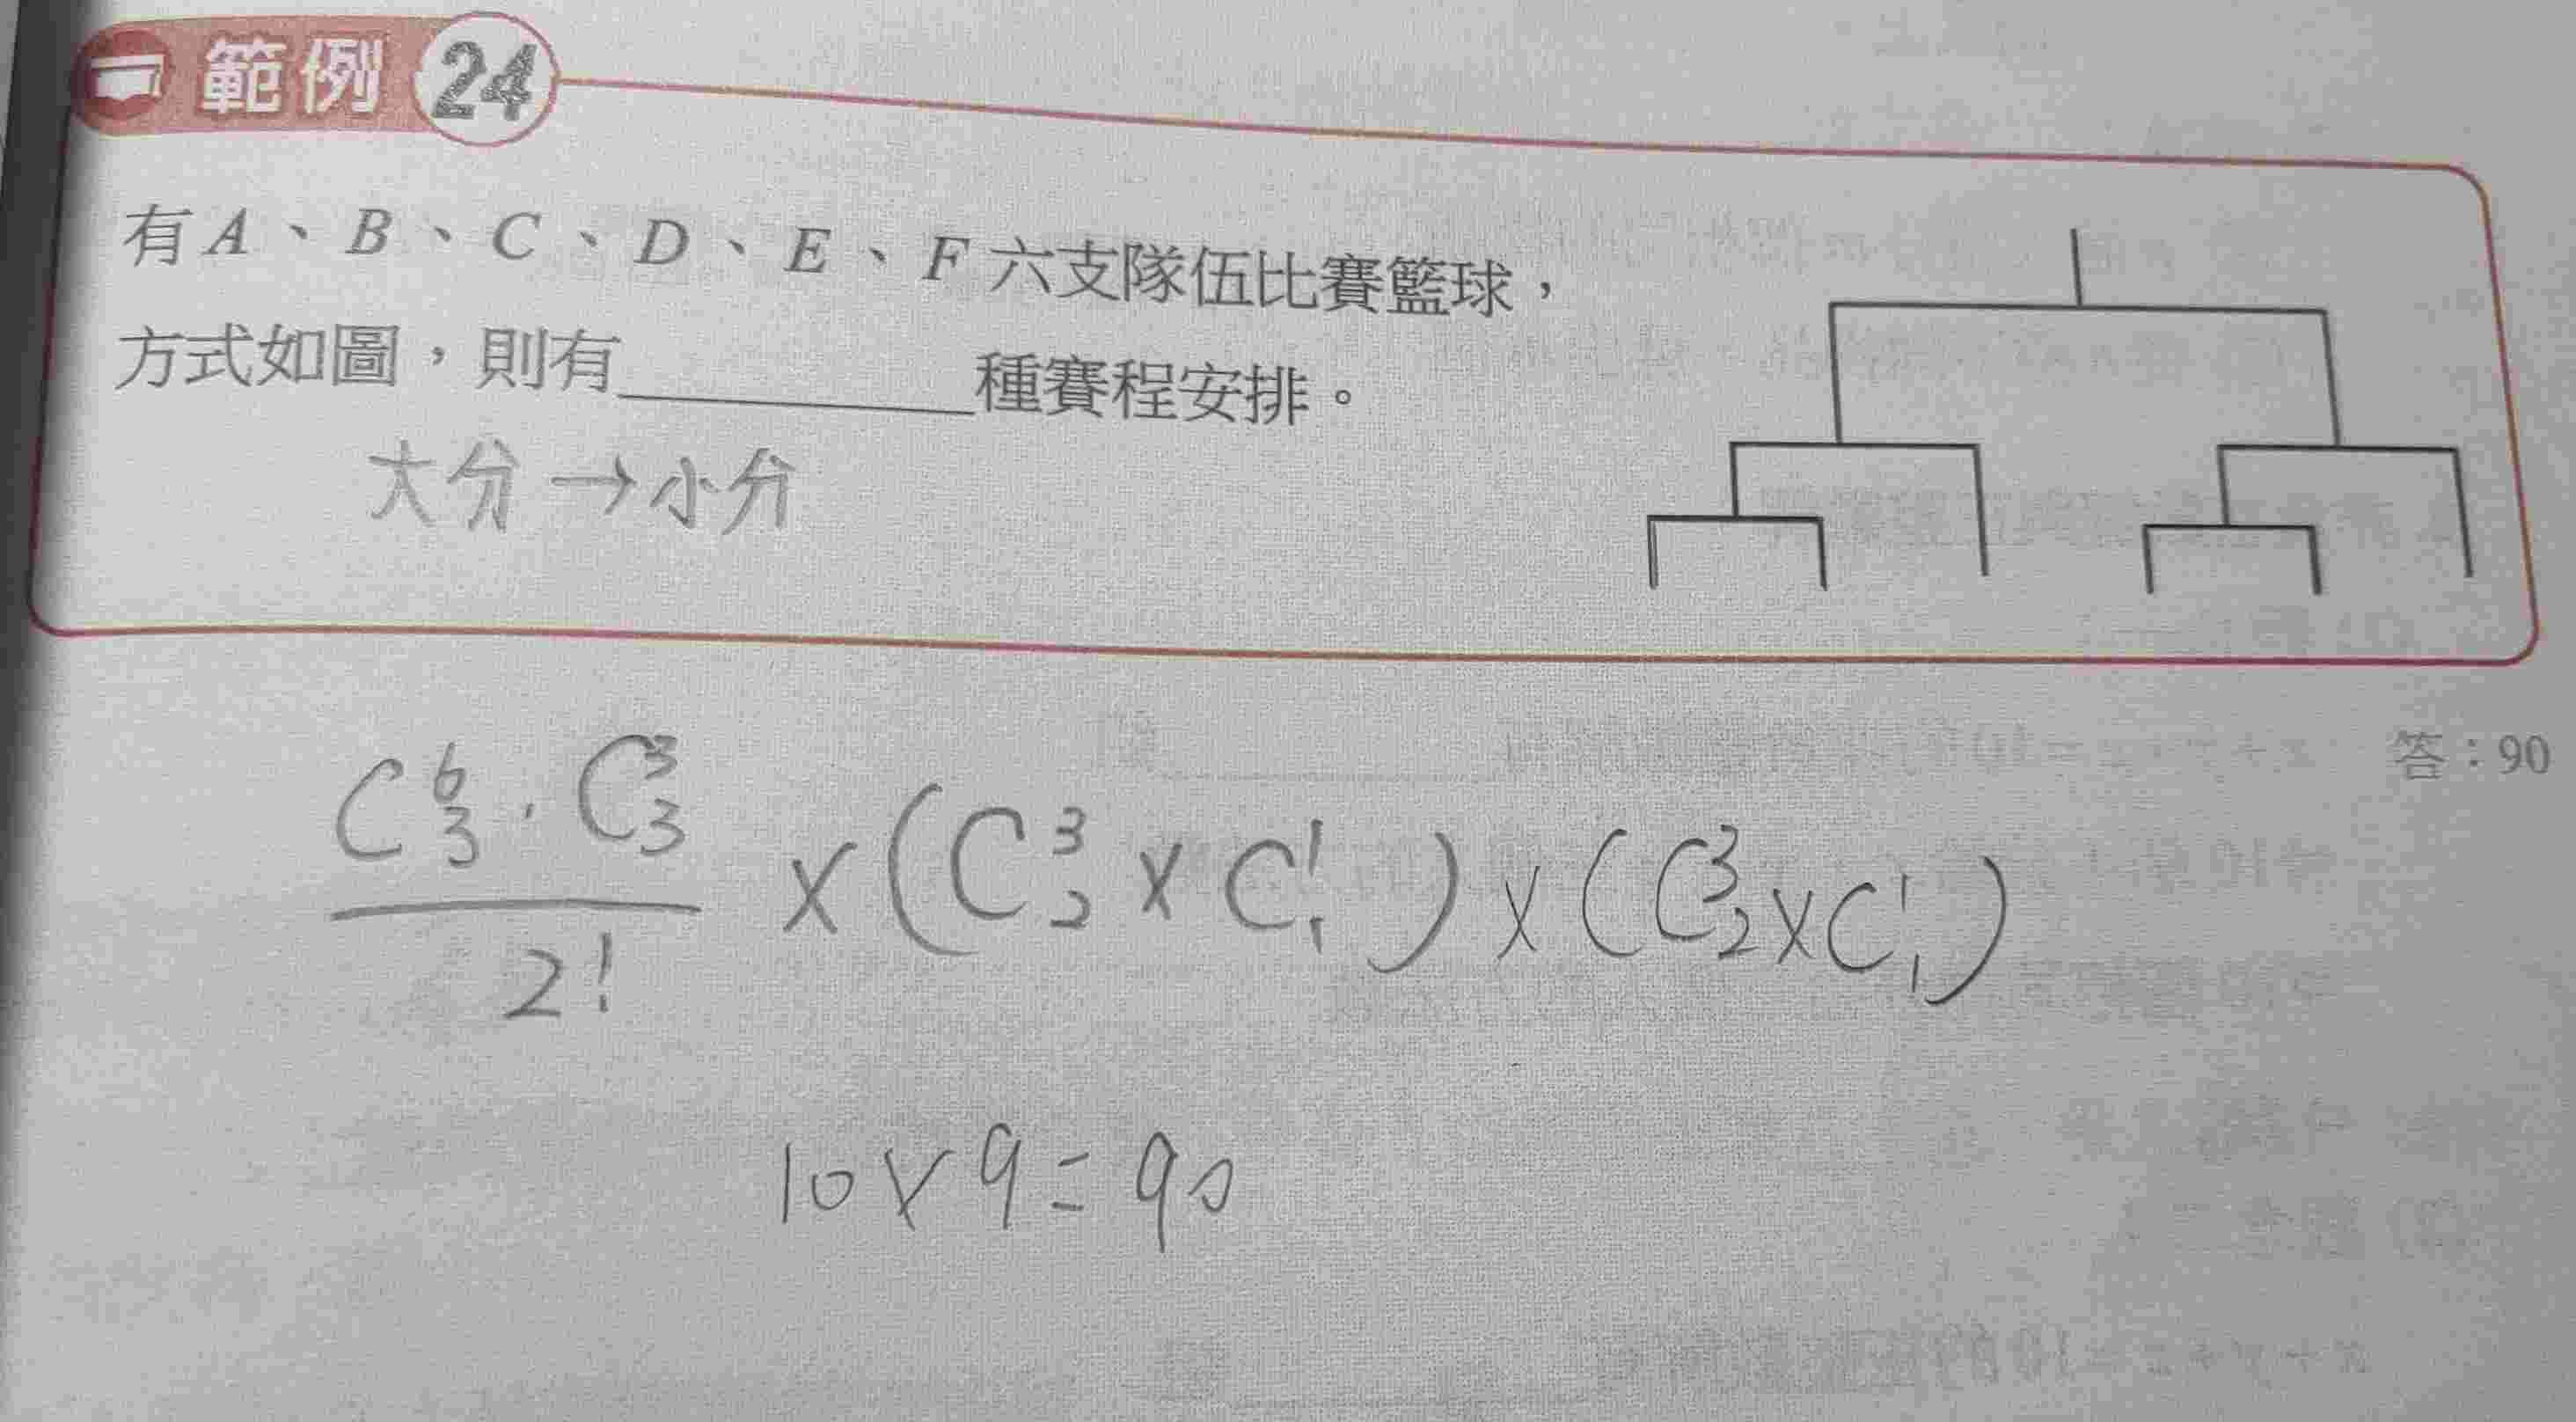 範例 24
有 A、B、C、D、E、F 六支隊伍比賽籃球，
方式如圖，則有________種賽程安排。
大分→小分
答：90
C^6_3 · C^3_3 / 2! × (C^3_2 × C^1_1) × (C^3_2 × C^1_1)
10 × 9 = 90